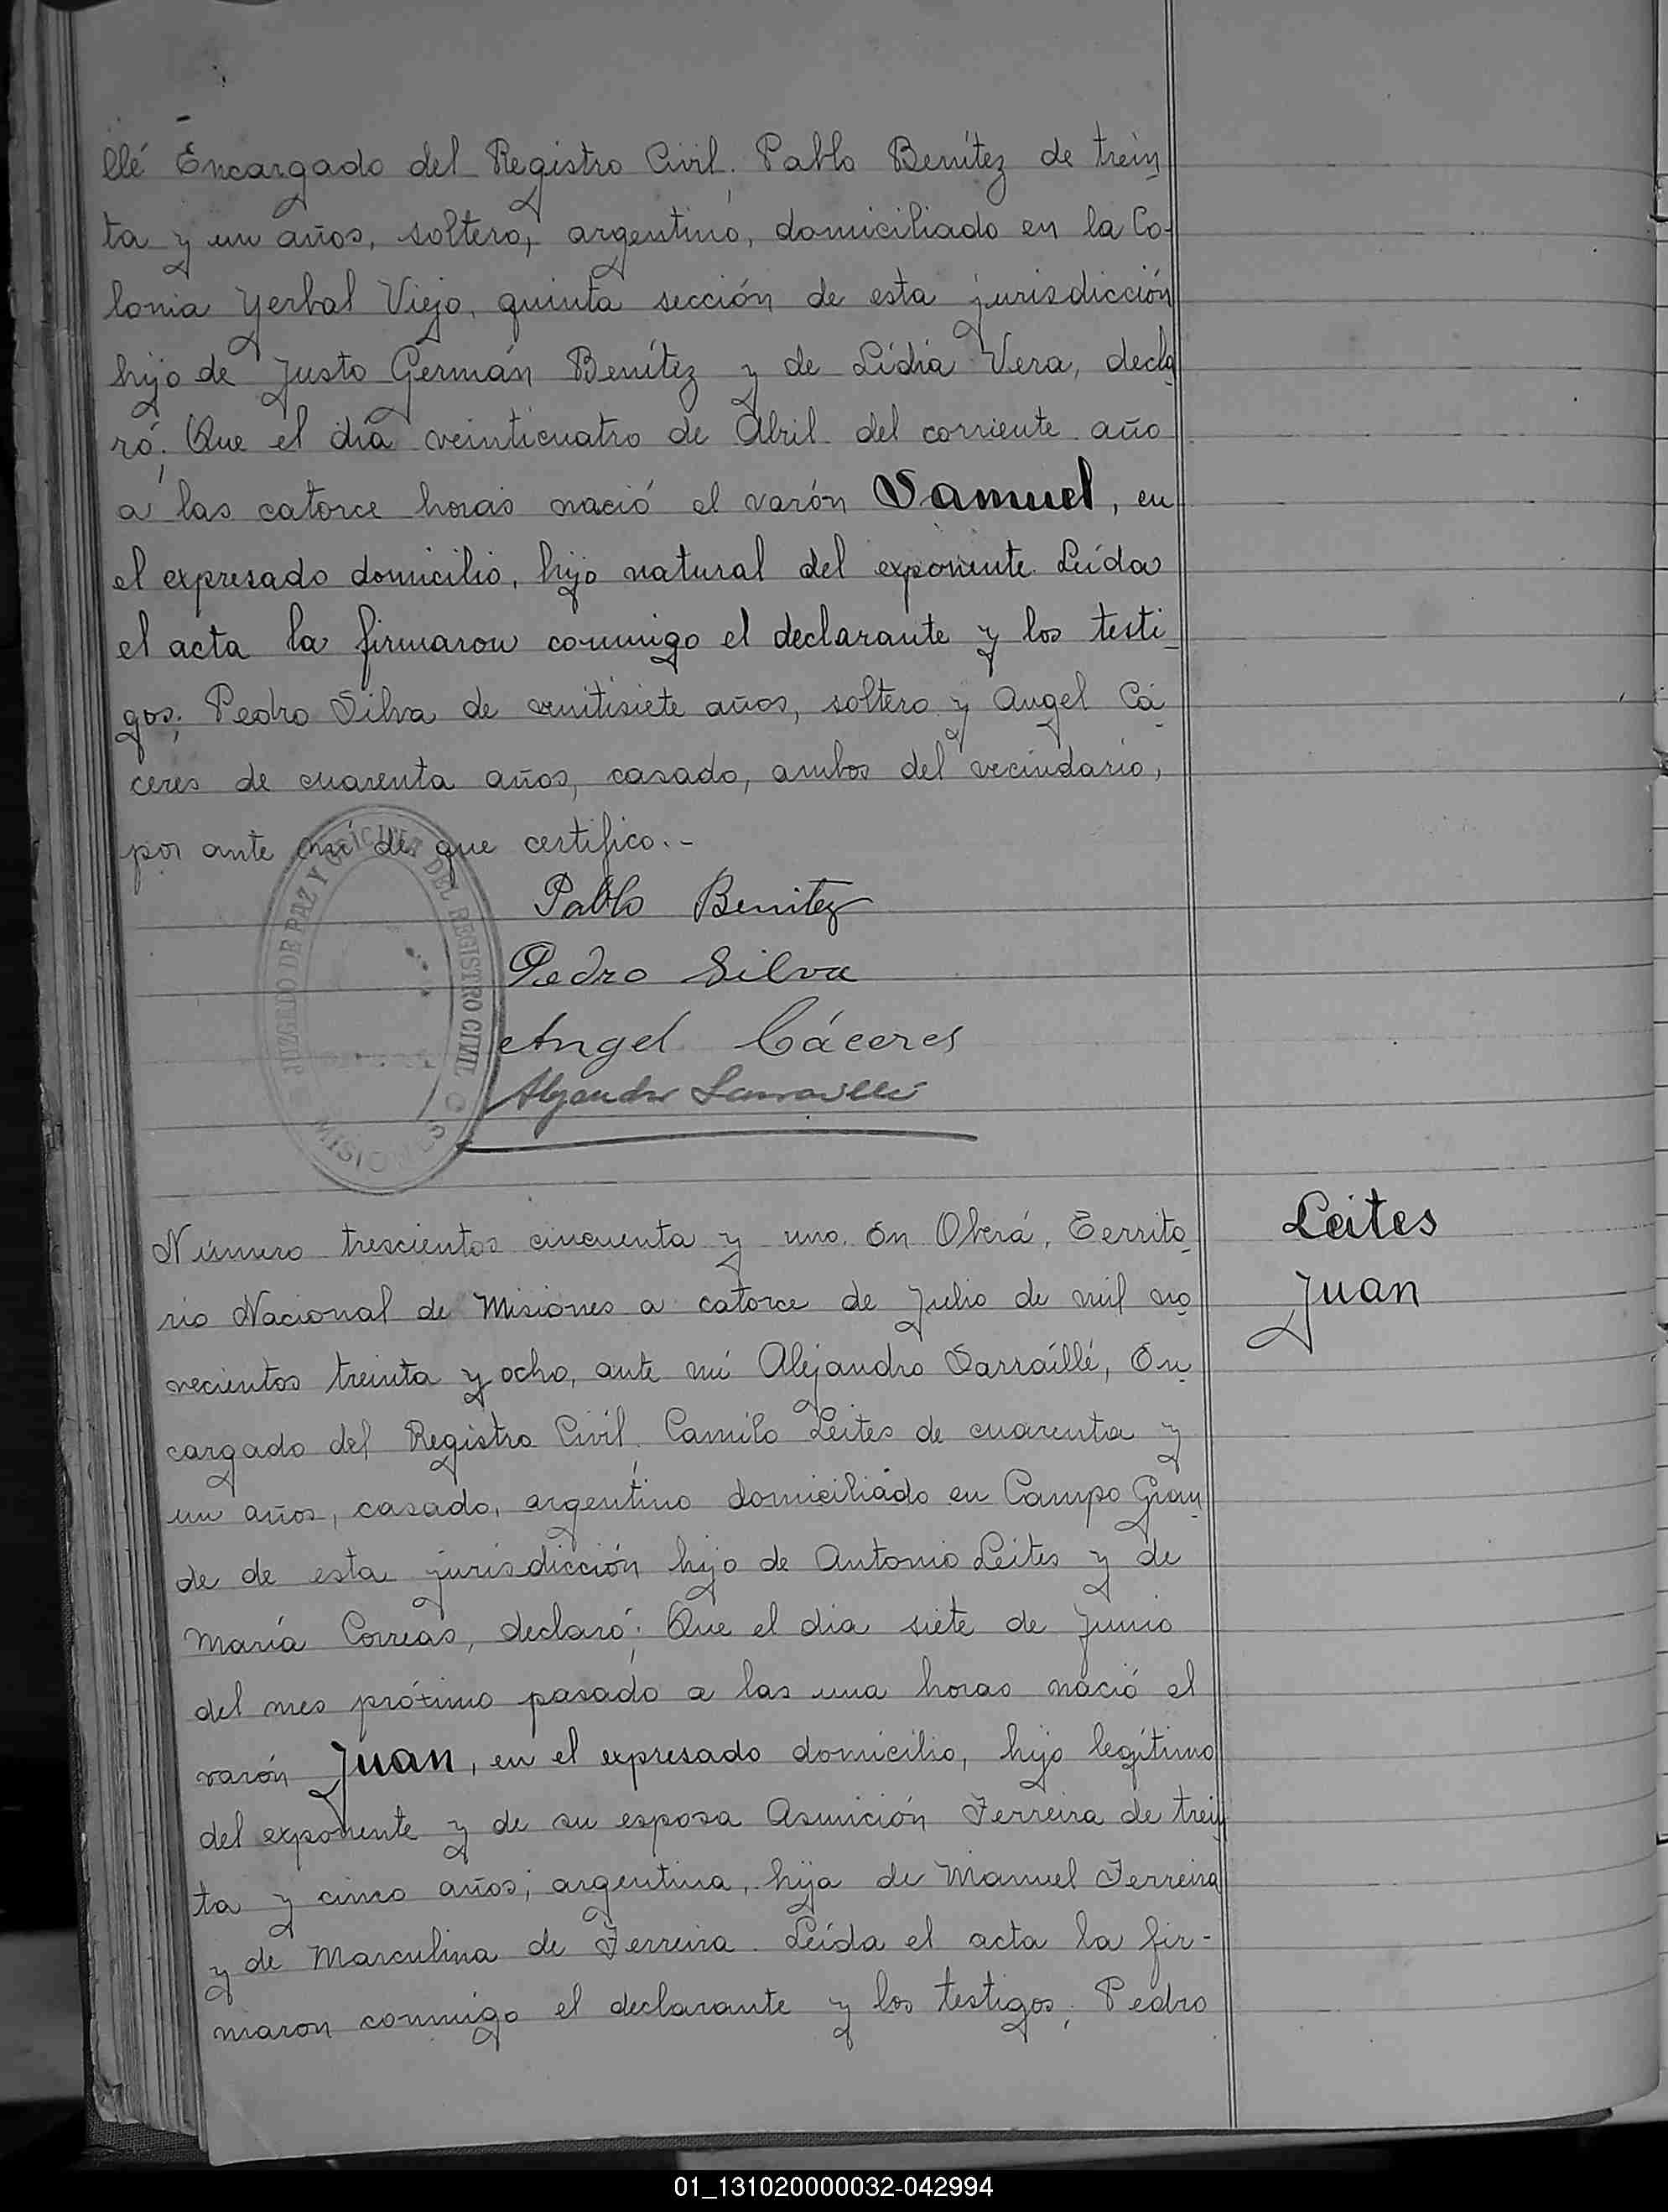 llé Encargado del Registro Civil. Pablo Benítez de trein
ta y un años, soltero, argentino, domiciliado en la Co-
lonia Yerbal Viejo, quinta sección de esta jurisdicción
hijo de Justo Germán Benítez y de Lidia Vera, decla
ró: Que el día veinticuatro de Abril del corriente año
a las catorce horas nació el varón Samuel, en
el expresado domicilio, hijo natural del exponente. Leída
el acta la firmaron conmigo el declarante y los testi
gos: Pedro Silva de venitisiete años, soltero y Angel Cá
ceres de cuarenta años, casado, ambos del vecindario,
por ante mí de que certifico.-
JUZGADO DE PAZ Y OFICINA DEL REGISTRO CIVIL
MISIONES
Pablo Benitez
Pedro Silva
Angel Cáceres
Alejandro Sarraillé
Leites
Juan
Número trescientos cincuenta y uno. En Oberá, Territo
rio Nacional de Misiones a catorce de Julio de mil no
vecientos treinta y ocho, ante mí Alejandro Sarraíllé, En
cargado del Registro Civil. Camilo Leites de cuarenta y
un años, casado, argentino domiciliado en Campo Gran
de de esta jurisdicción hijo de Antonio Leites y de
María Correas, declaró: Que el dia siete de Junio
del mes próximo pasado a las una horas nació el
varón Juan, en el expresado domicilio, hijo legítimo
del exponente y de su esposa Asunción Ferreira de trein
ta y cinco años, argentina, hija de Manuel Ferreira
y de Marculina de Ferreira. Leída el acta la fir-
maron conmigo el declarante y los testigos: Pedro
01_131020000032-042994